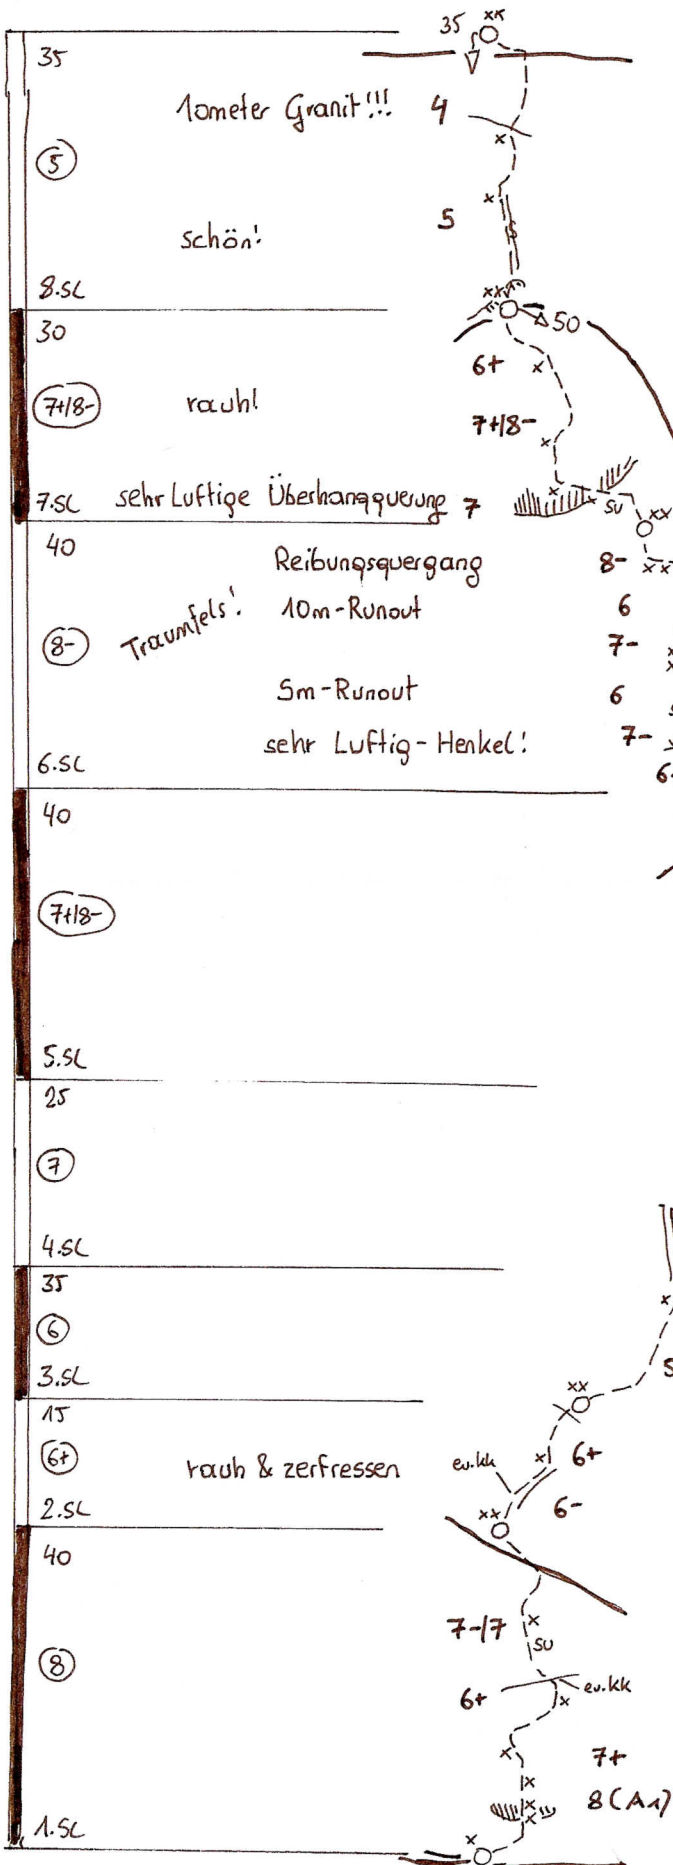 35 xx
35
10meter Granit!!! 4
x
5
x
schön! 5
8.SL xxv
30 50
6+ x
7+/8- rauh!
7+/8-
x
7.SL sehr Luftige Überhangquerung 7 x x SU
xx
40
Reibungsquergang 8- xx
Traumfels! 10m-Runout 6
8- 7-
5m-Runout 6
sehr Luftig-Henkel! 7-
6.SL
40
7+/8-
5.SL
25
7
4.SL
35 x
6
3.SL
xx
15
6+ rauh & zerfressen ev.kk x 6+
2.SL xx 6-
40
7-/7 x
SU
8
6+ x ev.kk
x 7+
x
x 8 (A1)
x
1.SL x